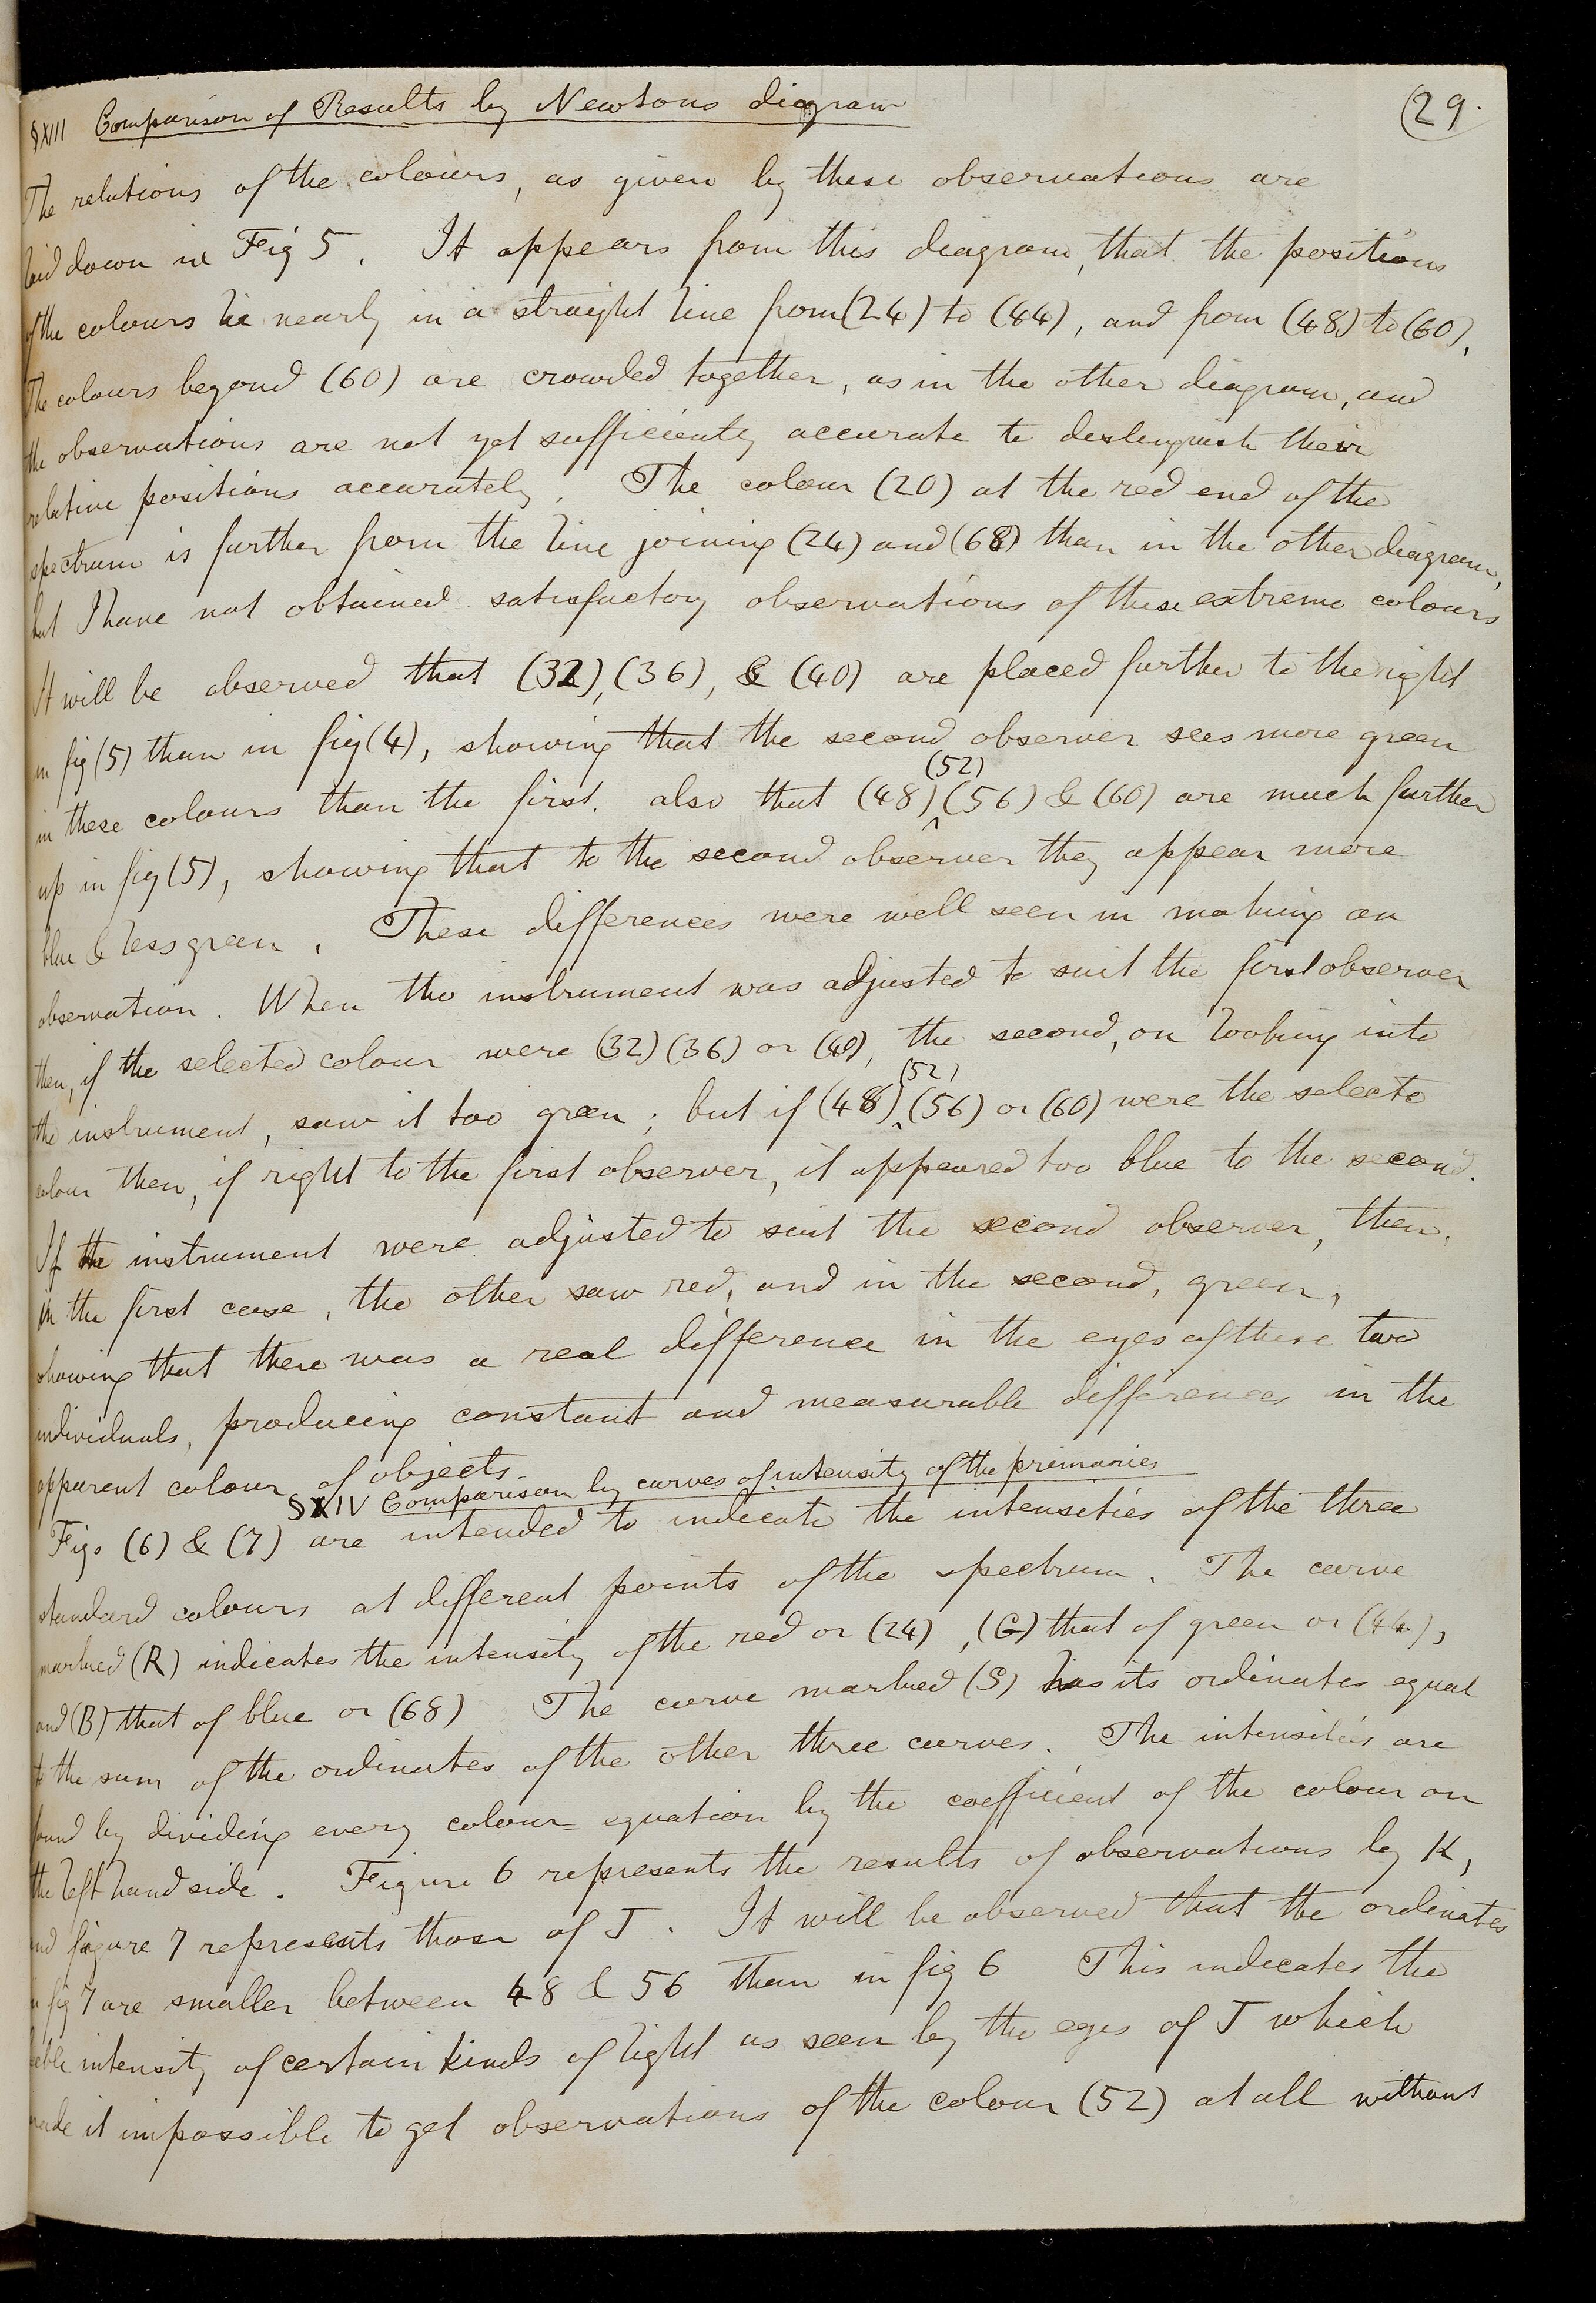 (29.
§XIII Comparison of Results by Newtons diagram
The relations of the colours, as given by these observations are
laid down in Fig 5. It appears from this diagram, that the positions
of the colours lie nearly in a straight line from (24) to (44), and from (48) to (60),
The colours beyond (60) are crowded together, as in the other diagram, and
the observations are not yet sufficiently accurate to distinguish their
relative positions accurately. The colour (20) at the red end of the
spectrum is further from the line joining (24) and (68) than in the other diagram,
but I have not obtained satisfactory observations of these extreme colours
It will be observed that (32), (36), & (40) are placed further to the right
in fig (5) than in fig (4), showing that the second observer sees more green
in these colours than the first. also that (48) (52) (56) & (60) are much further
up in fig (5), showing that to the second observer they appear more
blue & less green. These differences were well seen in making an
observation. When the instrument was adjusted to suit the first observer
then, if the selected colour were (32) (36) or (40), the second, on looking into
the instrument, saw it too green; but if (48) (52) (56) or (60) were the selecte
colour then, if right to the first observer, it appeared too blue to the second.
If the instrument were adjusted to suit the second observer, then,
in the first case, the other saw red, and in the second, green,
showing that there was a real difference in the eyes of these two
individuals, producing constant and measurable differences in the
apparent colour of objects.
§XIV Comparison by curves of intensity of the primaries
Figs (6) & (7) are intended to indicate the intensities of the three
standard colours at different points of the spectrum. The curve
marked (R) indicates the intensity of the red or (24), (G) that of green or (44),
and (B) that of blue or (68) The curve marked (S) has its ordinates equal
to the sum of the ordinates of the other three curves. The intensities are
found by dividing every colour-equation by the coefficient of the colour on
the left hand side. Figure 6 represents the results of observations by K,
and figure 7 represents those of J. It will be observed that the ordinates
in fig 7 are smaller between 48 & 56 than in fig 6 This indicates the
feeble intensity of certain kinds of light as seen by the eyes of J which
made it impossible to get observations of the colour (52) at all without